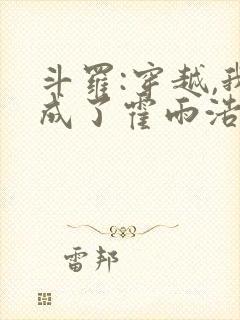 斗罗:穿越,我
成了霍雨浩
雷邦